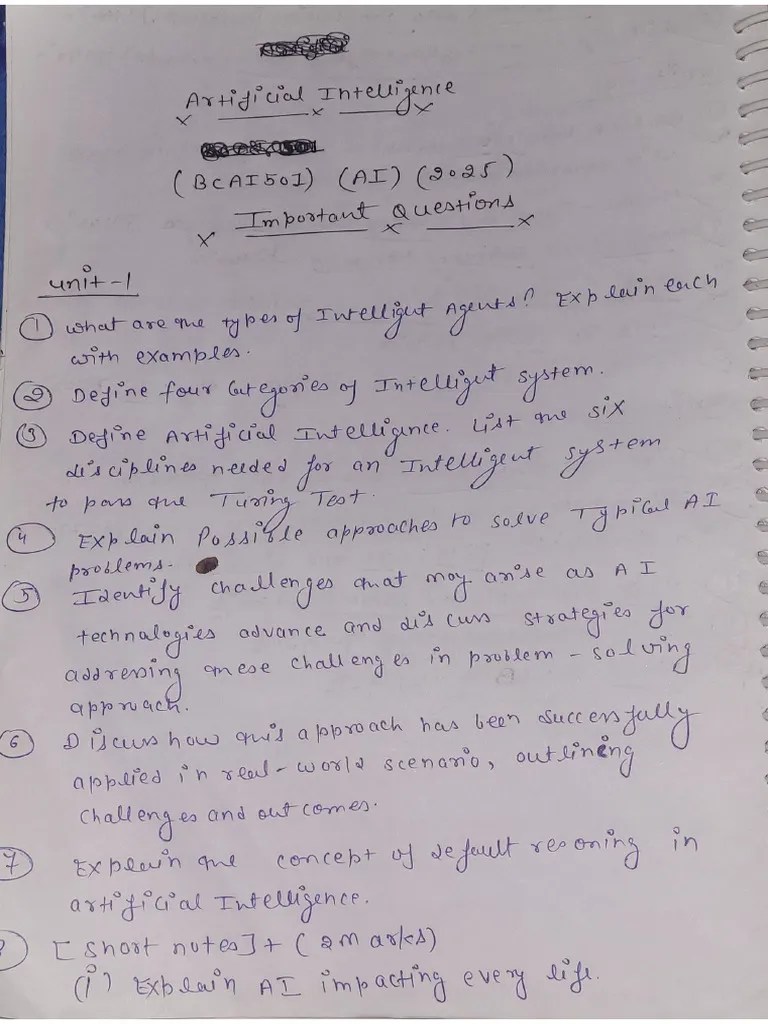 Artificial Intelligence
(BCAI501) (AI) (2025)
Important Questions
unit-1
① What are the types of Intelligent Agents? Explain each
with examples.
② Define four Categories of Intelligent system.
③ Define Artificial Intelligence. List the six
disciplines needed for an Intelligent system
to pass the Turing Test.
④ Explain Possible approaches to solve Typical AI
problems.
⑤ Identify challenges that may arise as AI
technologies advance and discuss strategies for
addressing these challenges in problem-solving
approach.
⑥ Discuss how this approach has been successfully
applied in real-world scenario, outlining
challenges and outcomes.
⑦ Explain the concept of default resoning in
artificial Intelligence.
[Short notes]+(2Marks)
(i) Explain AI impacting every life.